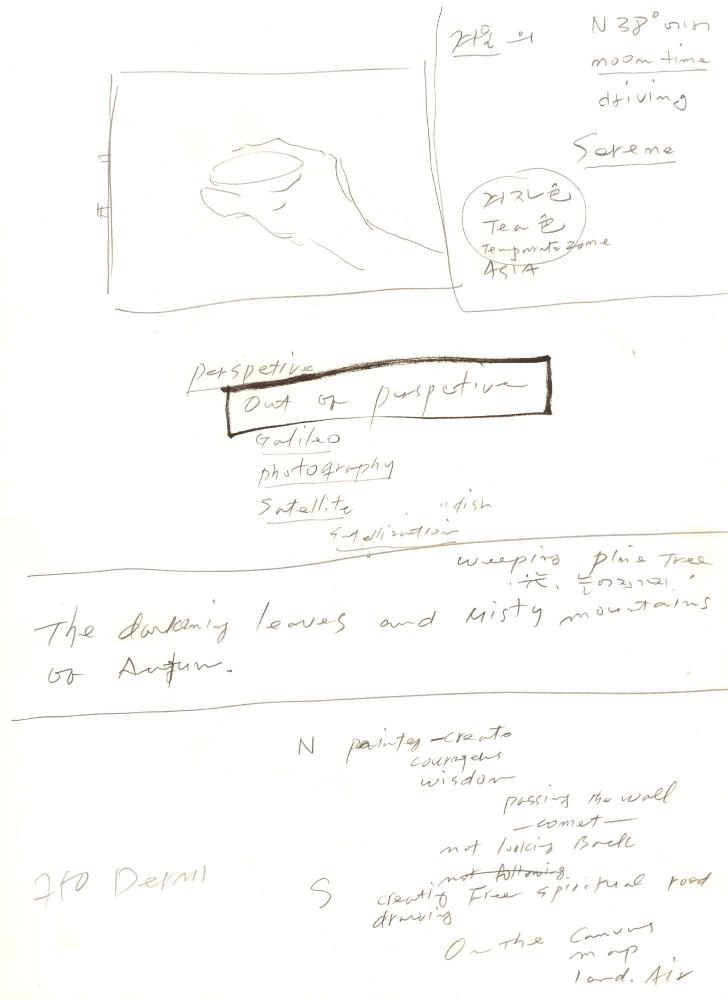 겨울의
N 38° 에서
moon time
driving
Serene
겨자色
Tea 色
Temparate zone
ASIA
perspetive
Out of perspetive
Galileo
photography
Satellite
"dish
Satellization
weeping pine Tree
The darkening leaves and misty mountains
of Autum.
N painting - create
courageus
wisdom
passing the wall
— comet —
not looking Back
not following
S creating Free spiritual road
drawing
On the Canvas
map
land. Air